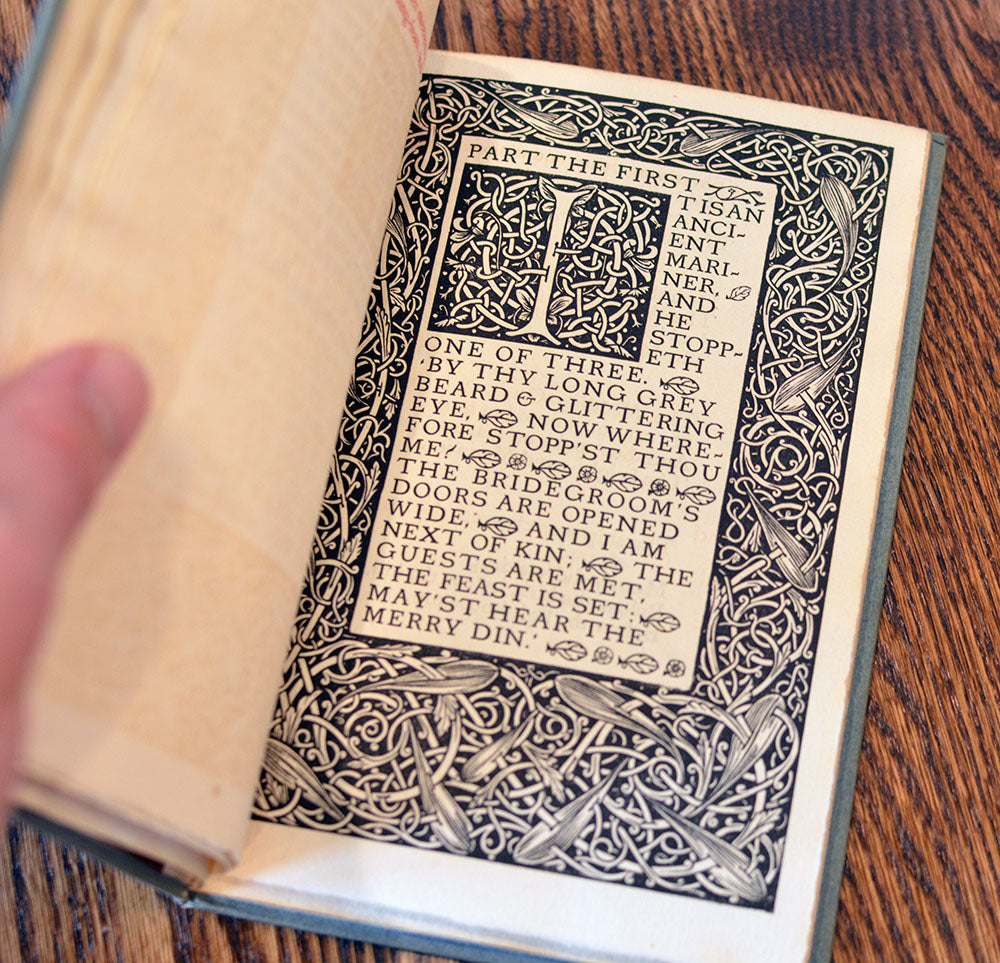 PART THE FIRST
I
T IS AN
ANCI~
ENT
MARI~
NER,
AND
HE
STOPP~
ETH
ONE OF THREE.
'BY THY LONG GREY
BEARD & GLITTERING
EYE, NOW WHERE~
FORE STOPP'ST THOU
ME?
THE BRIDEGROOM'S
DOORS ARE OPENED
WIDE, AND I AM
NEXT OF KIN; THE
GUESTS ARE MET,
THE FEAST IS SET:
MAY'ST HEAR THE
MERRY DIN.'